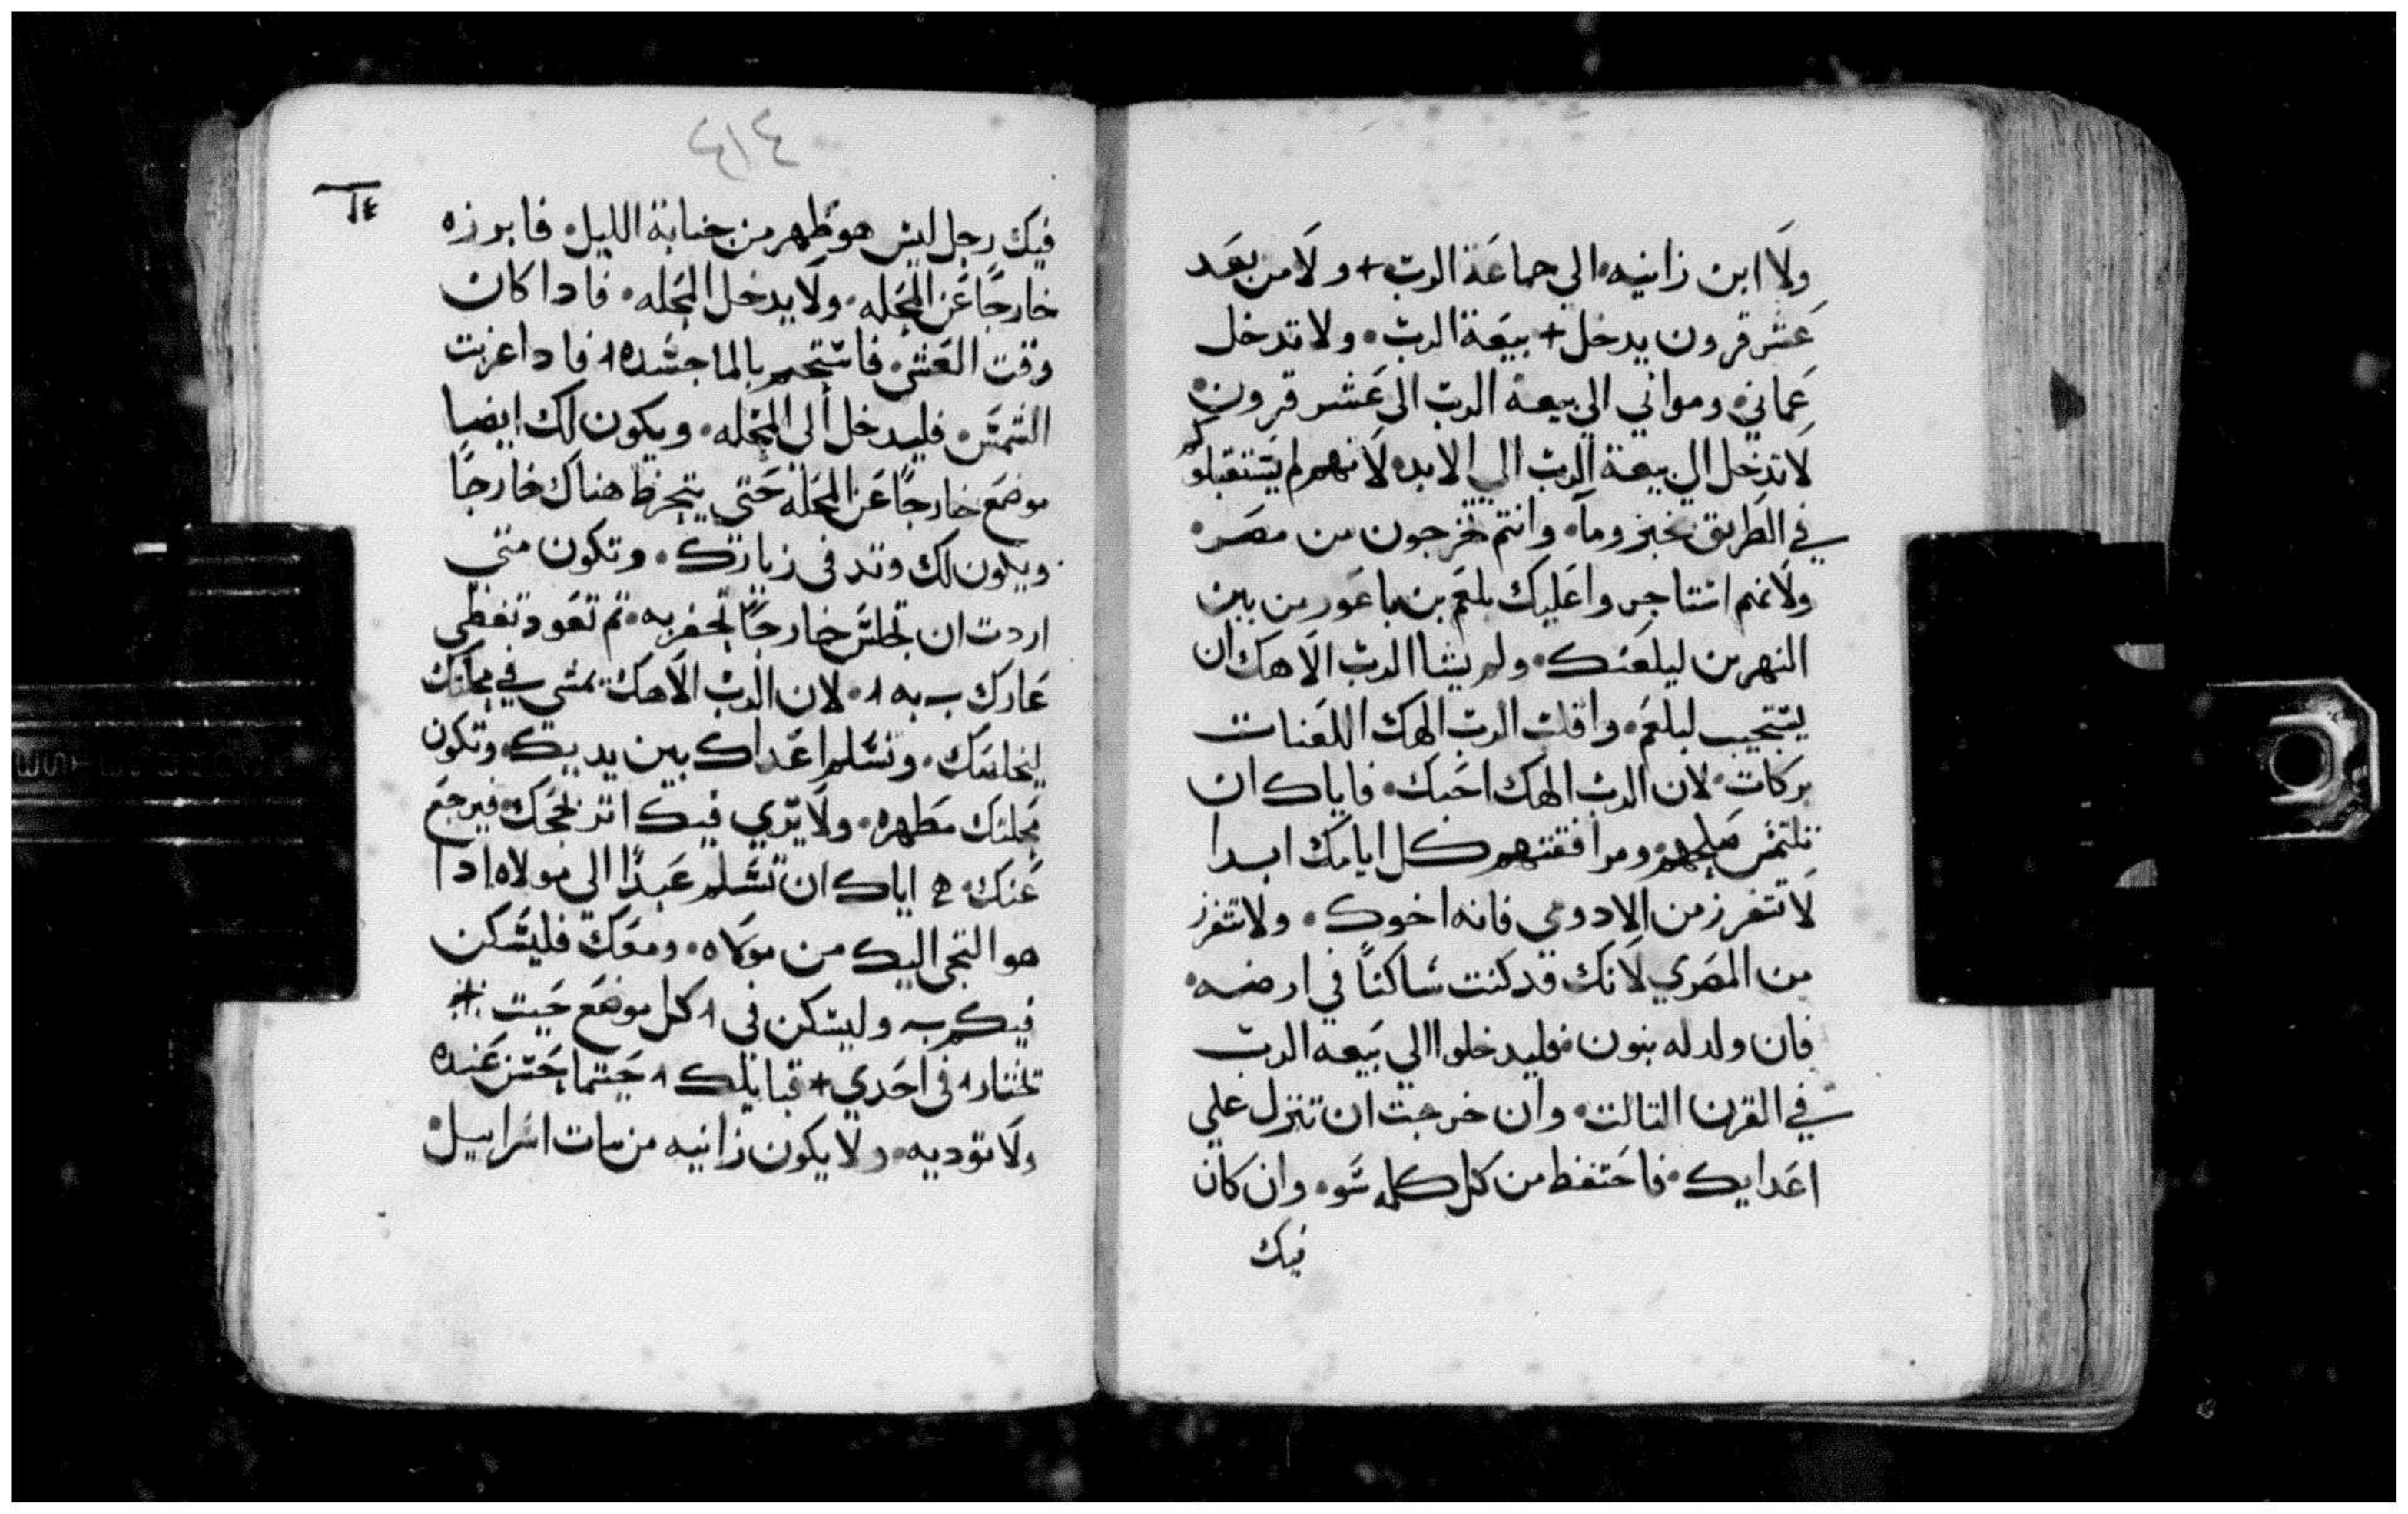 ولا ابن زانيه الي جماعة الرب + ولا من بعد
عشر قرون يدخل + بيعة الرب ولا تدخل
عماني ومواني الي بيعة الرب الي عشر قرون
لا تدخل الي بيعة الرب الي الابد لانهم لم يستقبلوكم
في الطريق بخبز وما وانتم تخرجون من مصر
ولانهم استاجروا عليك بلعم بن باعور من بين
النهرين ليلعنك ولم يشا الرب الاهك ان
يستجيب لبلعم واقلب الرب الهك اللعنات
بركات لان الرب الهك احبك فاياك ان
تلتمس صلحهم ومرافقتهم كل ايامك ابدا
لا تتفرز من الادومي فانه اخوك ولا تتفرز
من المصري لانك قد كنت ساكنا في ارضه
فان ولد له بنون فليدخلوا الي بيعه الرب
في القرن التالت وان خرجت ان تنزل علي
اعدايك فاحتفظ من كل كلمه سو وان كان
فيك
٤١٤
٦٤
فيك رجل ليس هو طهر من جنابة الليل فابرزه
خارجا عن المحله ولا يدخل المحله فادا كان
وقت العشي فاستحم بالما جسده فادا غربت
الشمس فليدخل الي المحله ويكون لك ايضا
موضع خارجا عن المحله حتي هناك خارجا
ويكون لك وتد في زنارك وتكون متي
اردت ان تجلس خارجا تحفر به تم تعود تغطي
عارك به لان الرب الاهك يمشي في محلتك
ليخلصك وتسلم اعداك بين يديك وتكون
محلتك مطهره ولا يري فيك فيرجع
عنك اياك ان تسلم عبدا الي مولاه ادا
هو التجي اليك من مولاه ومعك فليسكن
فيكم وليسكن في كل موضع حيت
تختار في احدي + قبايلك حيتما حسن عنده
ولا توديه ولا يكون زانيه من بنات اسراييل